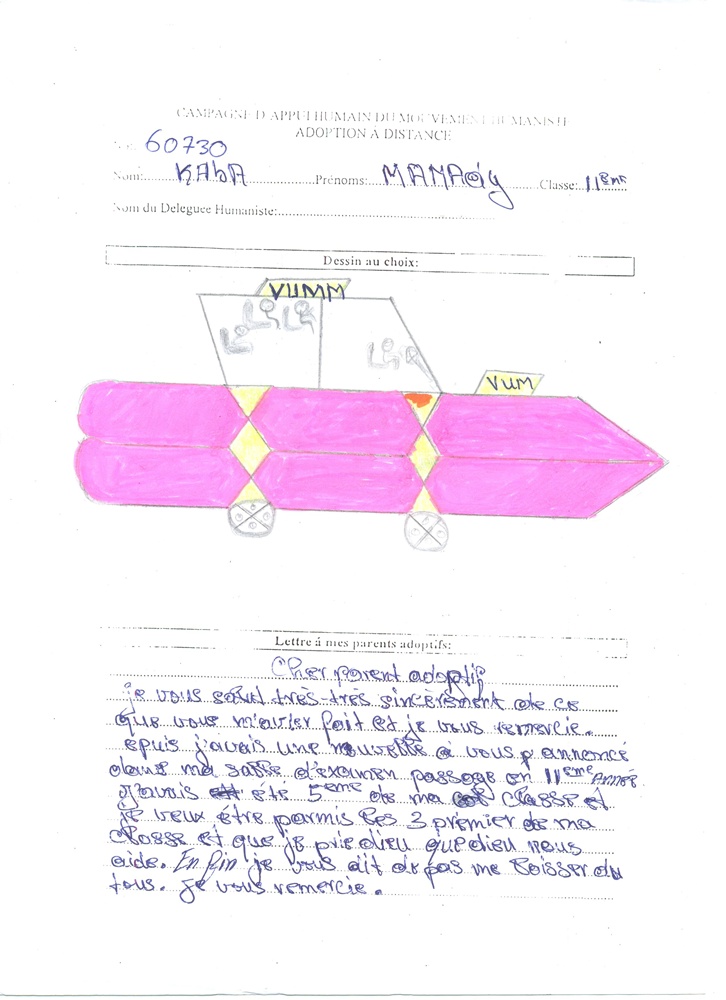 CAMPAGNE D'APPUI HUMAIN DU MOUVEMENT HUMANISTE
ADOPTION A DISTANCE
60730
Nom: KAbA Prénoms: MAMAdy Classe: 11ème
Nom du Deleguee Humaniste:
Dessin au choix:
VUMM
VUM
Lettre à mes parents adoptifs:
Cher parent adoptif
je vous salut très-très sincèrement de ce
que vous m'avier fait et je vous remercie.
epuis j'avais une nouvelle à vous annoncé
dans ma salle d'examen passage en 11eme ANNÉE
j'avais été 5eme de ma classe et
je veux être parmis les 3 premier de ma
classe et que je prie dieu que dieu nous
aide. En fin je vous dit de pas me loisser du
tous. je vous remercie.